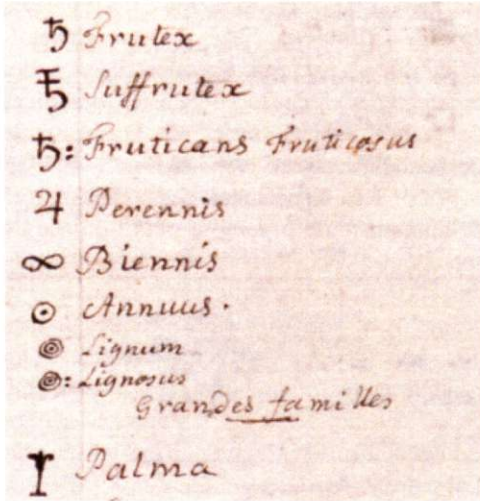 ♄ Frutex
Suffrutex
♄: Fruticans Fruticosus
♃ Perennis
∞ Biennis
☉ Annuus.
Lignum
: Lignosus
Grandes familles
Palma